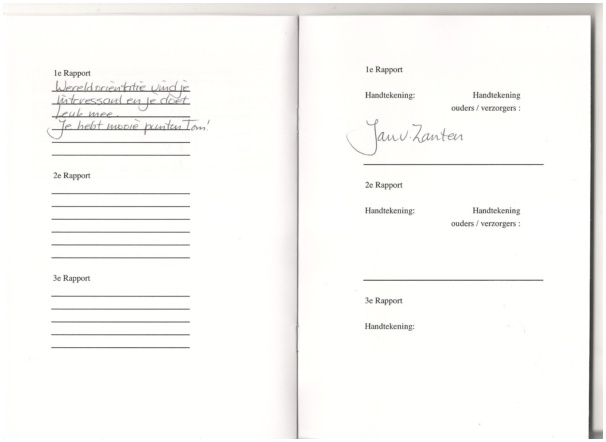 1e Rapport
Wereldorientatie vind je
interessant en je doet
leuk mee.
Je hebt mooie punten Tom!
2e Rapport
3e Rapport
1e Rapport
Handtekening: Handtekening
ouders / verzorgers :
Jan v. Zanten
2e Rapport
Handtekening: Handtekening
ouders / verzorgers :
3e Rapport
Handtekening: